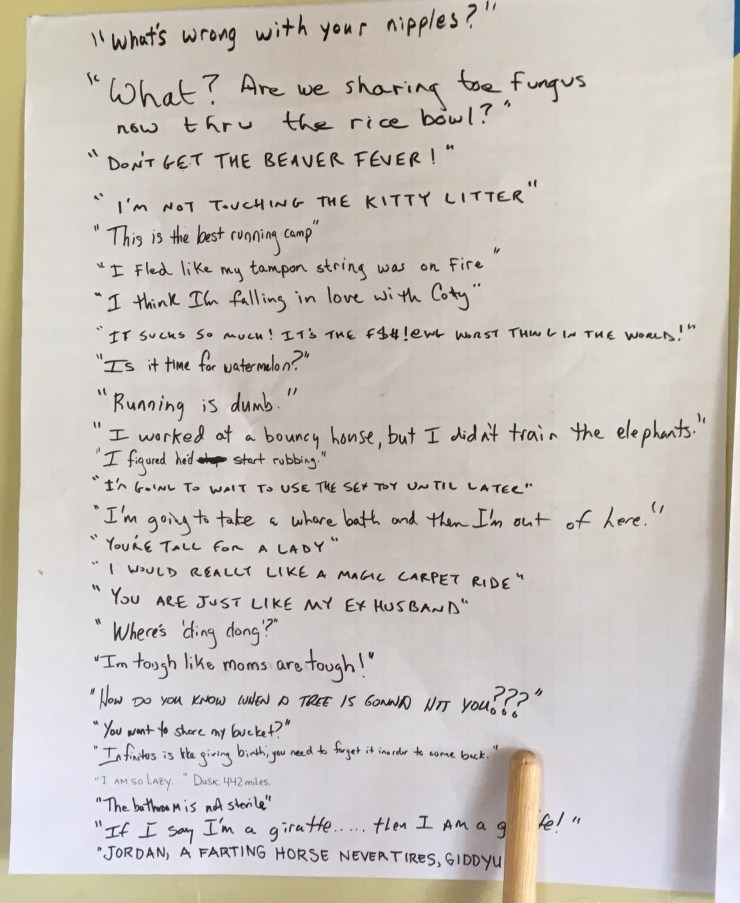 "What's wrong with your nipples?"
"What? Are we sharing toe fungus
now thru the rice bowl?"
"DON'T GET THE BEAVER FEVER!"
"I'M NOT TOUCHING THE KITTY LITTER"
"This is the best running camp"
"I Fled like my tampon string was on Fire"
"I think I'm falling in love with Coty"
"IT SUCKS SO MUCH! IT'S THE F$#!@WL WORST THING IN THE WORLD!"
"Is it time for watermelon?"
"Running is dumb."
"I worked at a bouncy house, but I didn't train the elephants."
"I figured he'd start rubbing."
"I'M GOING TO WAIT TO USE THE SEX TOY UNTIL LATER"
"I'm going to take a whore bath and then I'm out of here."
"YOU'RE TALL FOR A LADY"
"I WOULD REALLY LIKE A MAGIC CARPET RIDE"
"YOU ARE JUST LIKE MY EX HUSBAND"
"Where's 'ding dong'?"
"Im tough like moms are tough!"
"HOW DO YOU KNOW WHEN A TREE IS GONNA HIT YOU???"
"You want to share my bucket?"
"Infinitus is like giving birth, you need to forget it inorder to come back."
"I AM SO LAZY." Dusk. 442 miles.
"The bathroom is not sterile"
"If I say I'm a giraffe..... then I AM a g fe!"
"JORDAN, A FARTING HORSE NEVER TIRES, GIDDYU